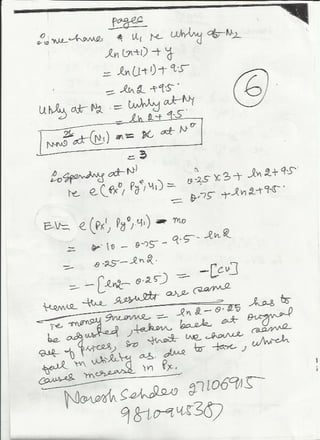 Page 6
∴ we have u1 ie utility at N2
ln(x+1) + y
= ln(1+1) + 9.5
= ln2 + 9.5
Utility at N2 = Utility at N1
= ln 2 + 9.5
6
Now at (N1) = x at N0
= 3
∴ Spending at N1
ie e(Px0, Py0, u1) = 0.25 x 3 + ln2 + 9.5
= 0.75 + ln2 + 9.5
EV = e(Px1, Py0, u1) - mo
= 10 - 0.75 - 9.5 - ln2
= 0.25 - ln2
= -[ln2 - 0.25] = -[CV]
Hence the results are same
ie money Income = ln2 - 0.25 has to
be adjusted, taken back at original
set of prices, so that we have same
fall in utility as due to tax, which
causes increase in Px.
Naresh Sehdev 27106915
9810945387